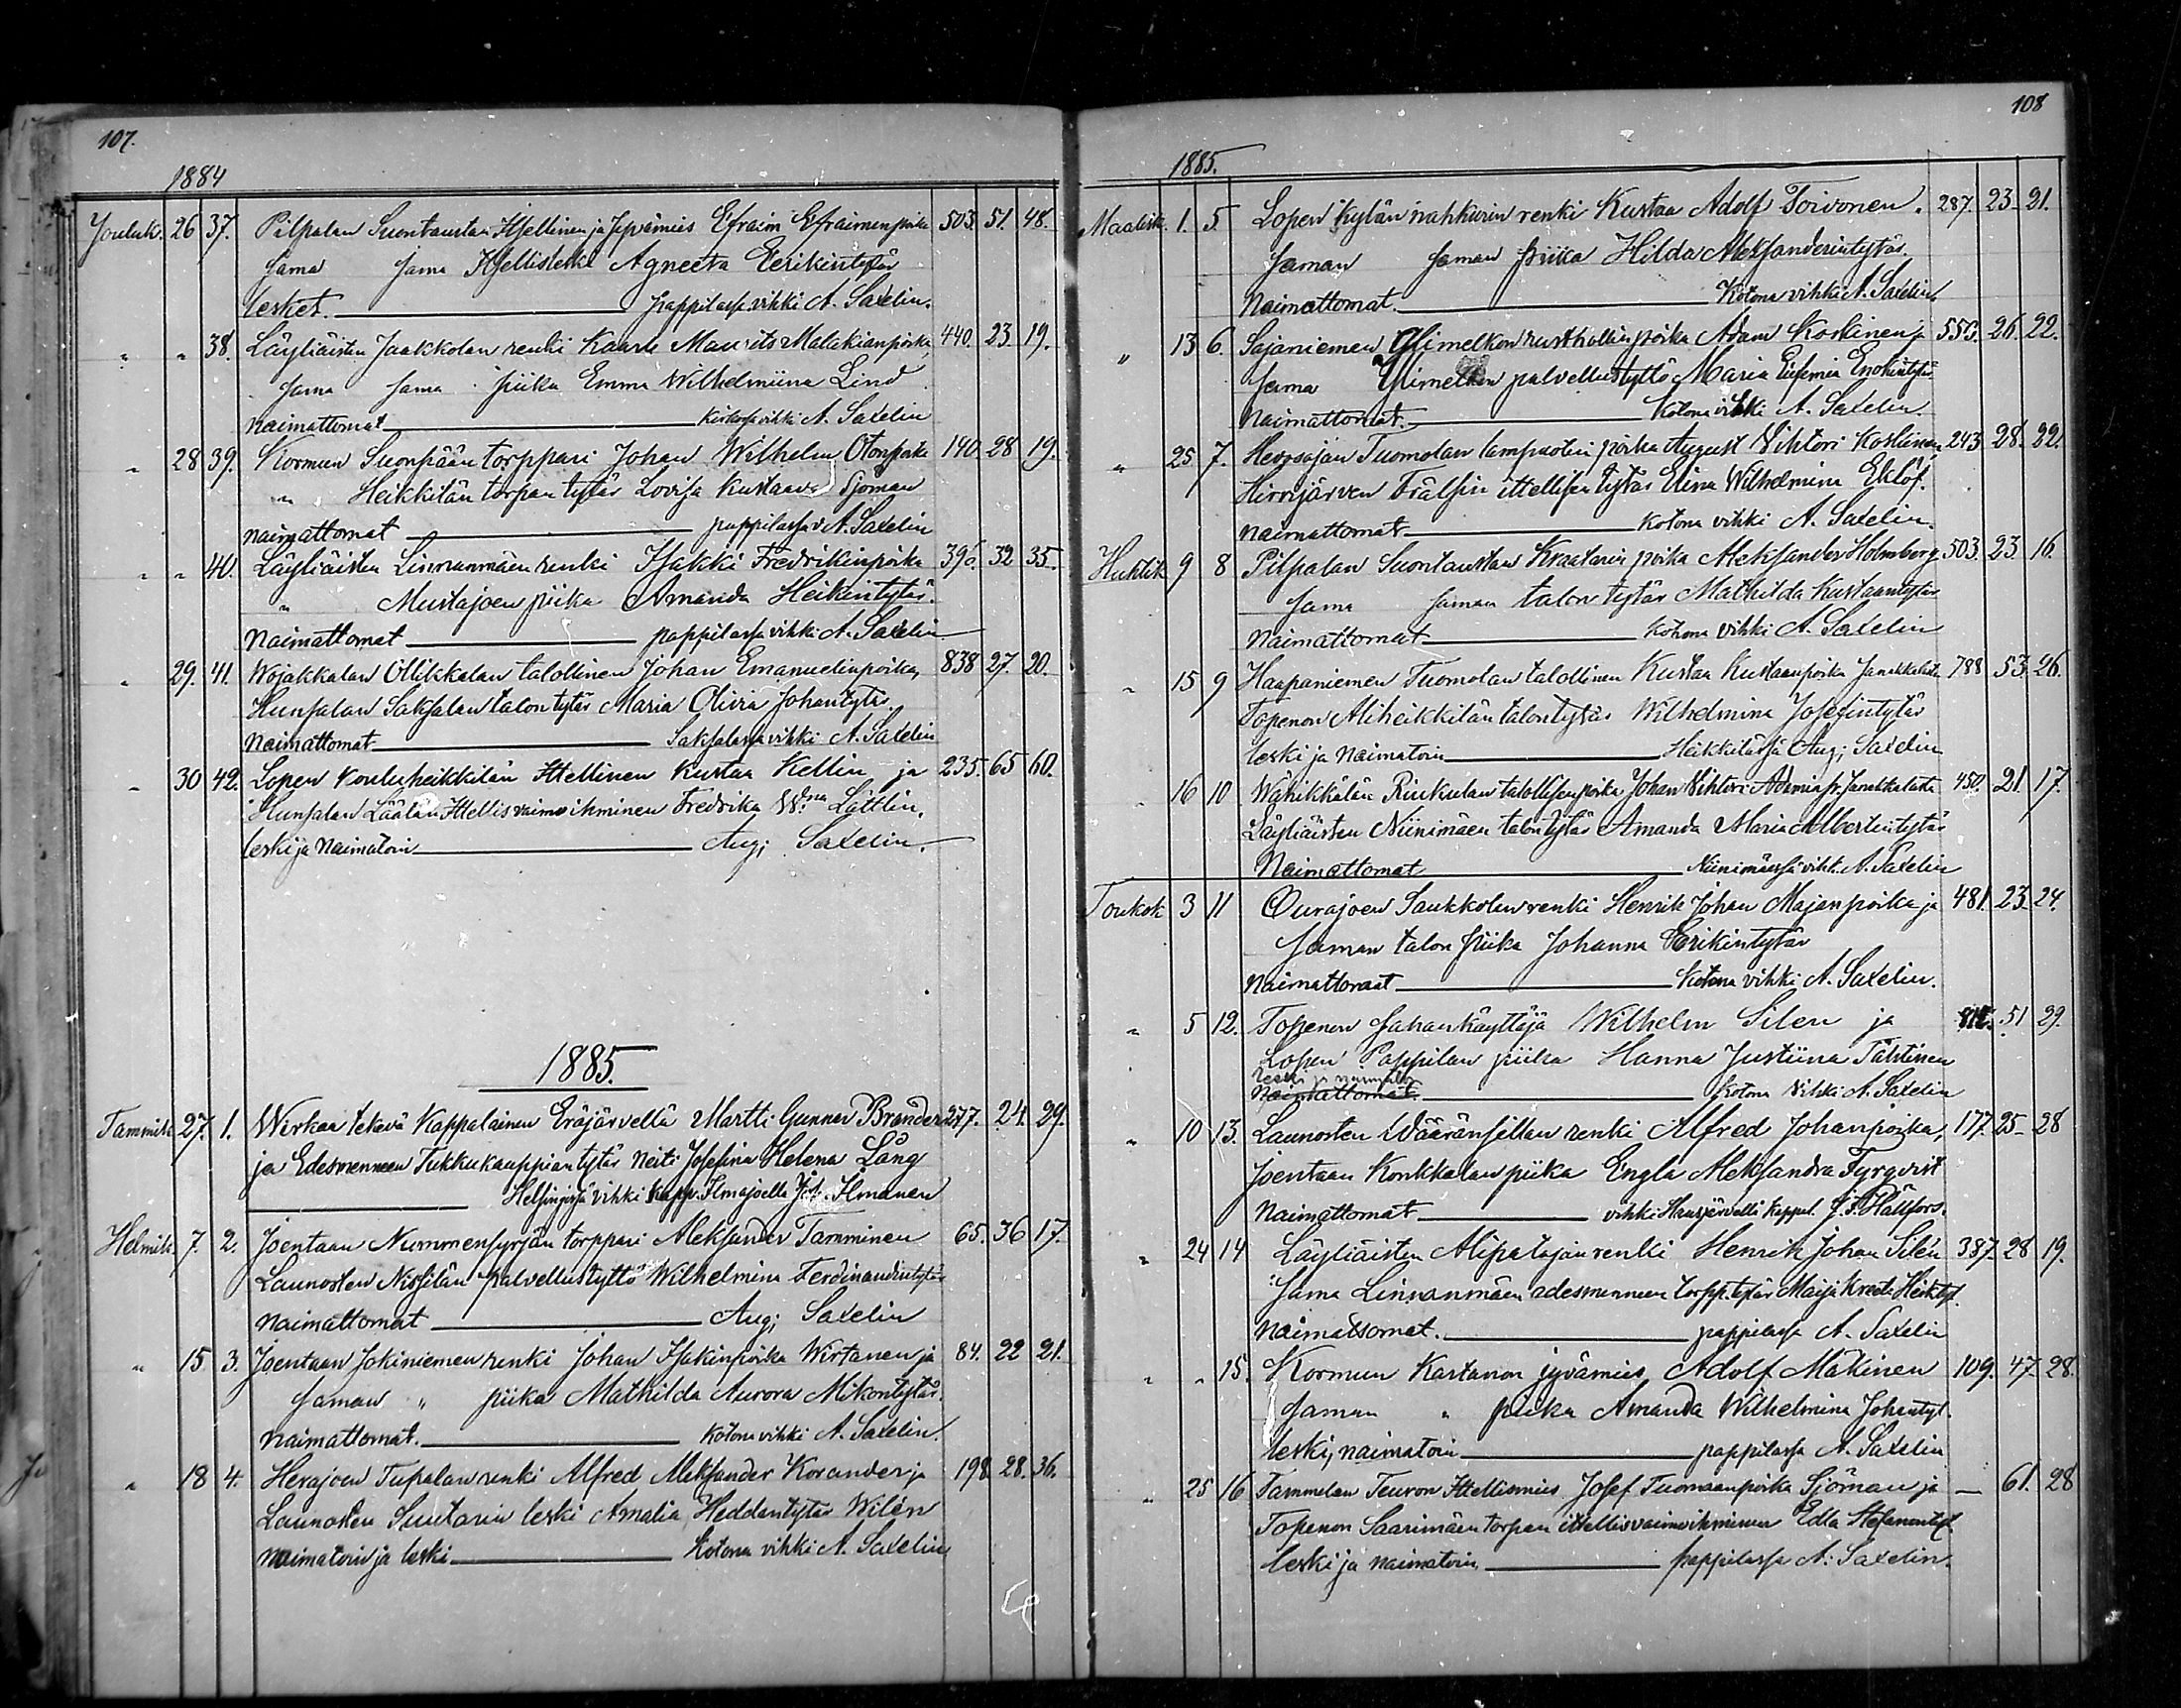 107.
1884
Jouluk. 26 37. Pilpalan Suontaustan Itsellinen ja Jyvämies Efraim Efraiminpoika 503. 51. 48.
Sama Sama Itsellisleski Agneeta Eerikintytär
lesket. pappilassa vihki A. Saxelin.
" " 38. Läyliäisten Jaakkolan renki Kaarle Maurits Malakianpoika, 440. 23. 19.
Sama Sama piika Emma Wilhelmiina Lind
naimattomat kirkossa vihki A. Saxelin
" 28 39. Kormun Suonpään torppari Johan Wilhelm Otonpoika 140. 28 19.
" Heikkilän torpan tytär Lovisa Kustaava Sjöman
naimattomat pappilassa v. A. Saxelin
" " 40. Läyliäisten Linnanmäen renki Isakki Fredrikinpoika 396. 32 35.
" Mustajoen piika Amanda Heikintytär.
Naimattomat pappilassa vihki A. Saxelin
" 29. 41. Wojakkalan Ollikkalan talollinen Johan Emanuelinpoika, 838 27. 20.
Hunsalan Saksalan talon tytär Maria Olivia Johantytär.
Naimattomat Saksalassa vihki A. Saxelin
" 30 42. Lopen Kouluheikkilän Itsellinen Kustaa Kellin ja 235. 65 60.
Hunsalan Läälän Itsellisvaimoihminen Fredrika W:na Lättlin.
leski ja Naimatoin Aug; Saxelin.
1885.
Tammik. 27. 1. Wirkaa tekevä Kappalainen Eräjärvellä Martti Gunnar Brander 277. 24. 29.
ja Edesmenneen Tukkukauppian tytär Neiti Josefina Helena Lång
Helsingissä vihki Kapp. Ilmajoella Joh. Ilmanen
Helmik. 7. 2. Joentaan Nummensyrjän torppari Aleksander Tamminen 65. 36 17.
Launosten Nissilän palvellustyttö Wilhelmina Ferdinandintytär
naimattomat Aug; Saxelin
" 15 3. Joentaan Jokiniemen renki Johan Isakinpoika Wirtanen ja 84. 22 21.
Saman " piika Mathilda Aurora Mikontytär.
Naimattomat. Kotona vihki A. Saxelin.
" 18 4. Herajoen Tupalan renki Alfred Aleksander Korander ja 198 28. 36.
Launosten Suutarin leski Amalia Heddantytär Wilén
naimatoin ja leski Kotona vihki A. Saxelin
108
1885.
Maalisk. 1. 5. Lopen kylän nahkurin renki Kustaa Adolf Toivonen. 287. 23. 21.
Saman Saman piika Hilda Aleksanderintytär.
Naimattomat. Kotona vihki A. Saxelin
" 13 6. Sajaniemen Ylimelkon rusthollin poika Adam Koskinen ja 553. 26. 22.
Sama Ylimelkon palvellustyttö Maria Eufemia Enokintytär
Naimattomat. Kotona vihki A. Saxelin.
" 25 7. Hevosojan Tuomolan lampuotin poika August Vihtori Koskinen 243 28. 22.
Hirvijärven Frälsin itellisen tytär Elina Wilhelmina Eklöf.
naimattomat Kotona vihki A. Saxelin.
Huhtik 9 8 Pilpalan Suontaustan Kraatarin poika Aleksander Holmberg 503. 23 16.
Sama Saman talon tytär Mathilda Kustaantytär
Naimattomat Kotona vihki A. Saxelin
" 15 9 Haapaniemen Tuomolan talollinen Kustaa Kustaanpoika Janakkalasta 788 53. 26.
Topenon Aliheikkilän talontytär Wilhelmina Josefintytär
leski ja Naimatoin Heikkilässä Aug; Saxelin
" 16 10 Wähikkälän Rinkulan talollisen poika Johan Vihtori Adamin p. Janakkalasta 450. 21. 17.
Läyliäisten Niinimäen talon tytär Amanda Maria Albertintytär
Naimattomat Niinimäessä vihk. A. Saxelin
Toukok 3 11 Ourajoen Saukkolan renki Henrik Johan Majanpoika ja 481. 23. 24.
Saman talon piika Johanna Eerikintytär
Naimattomat Kotona vihki A. Saxelin.
" 5 12. Topenon sahankäyttäjä Wilhelm Silen ja 51 29.
Lopen Pappilan piika Hanna Justiina Tähtinen
leski ja naimatoin
Naimattomat. Kotona vihki A. Saxelin
" 10 13. Launosten Wääränsillan renki Alfred Johanpoika, 177. 25 28
Joentaan Konkkalan piika Engla Aleksandra Fyrqvist
Naimattomat vihki Hausjärvellä kappal. J. F. Hällfors.
" 24 14 Läyliäisten Alipatajan renki Henrik Johan Silén 387. 28 19.
Sama Linnanmäen edesmenneen torpp. tytär Maija Kreeta Heikityt.
Naimattomat. pappilassa A. Saxelin
" " 15. Kormun Kartanon jyvämies, Adolf Mäkinen 109. 47. 28.
Saman " piika Amanda Wilhelmina Johantyt.
leski, naimatoin pappilassa A. Saxelin
" 25 16 Tammelan Teuron Itsellismies Josef Tuomaanpoika Sjöman ja — 61. 28
Topenon Saarimäen torpan itsellisvaimoihminen Edla Stefanintyt.
leski ja naimatoin pappilassa A. Saxelin.